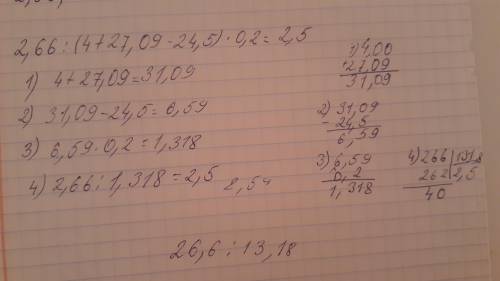 2,66 : (4+27,09-24,5) · 0,2 = 2,5
1) 4+27,09=31,09
2) 31,09-24,5=6,59
3) 6,59·0,2=1,318
4) 2,66 : 1,318 = 2,5
1) 4,00
+27,09
31,09
2) 31,09
- 24,5
6,59
3) 6,59
0,2
1,318
4) 266 | 131,8
262 | 2,5
40
26,6 : 13,18